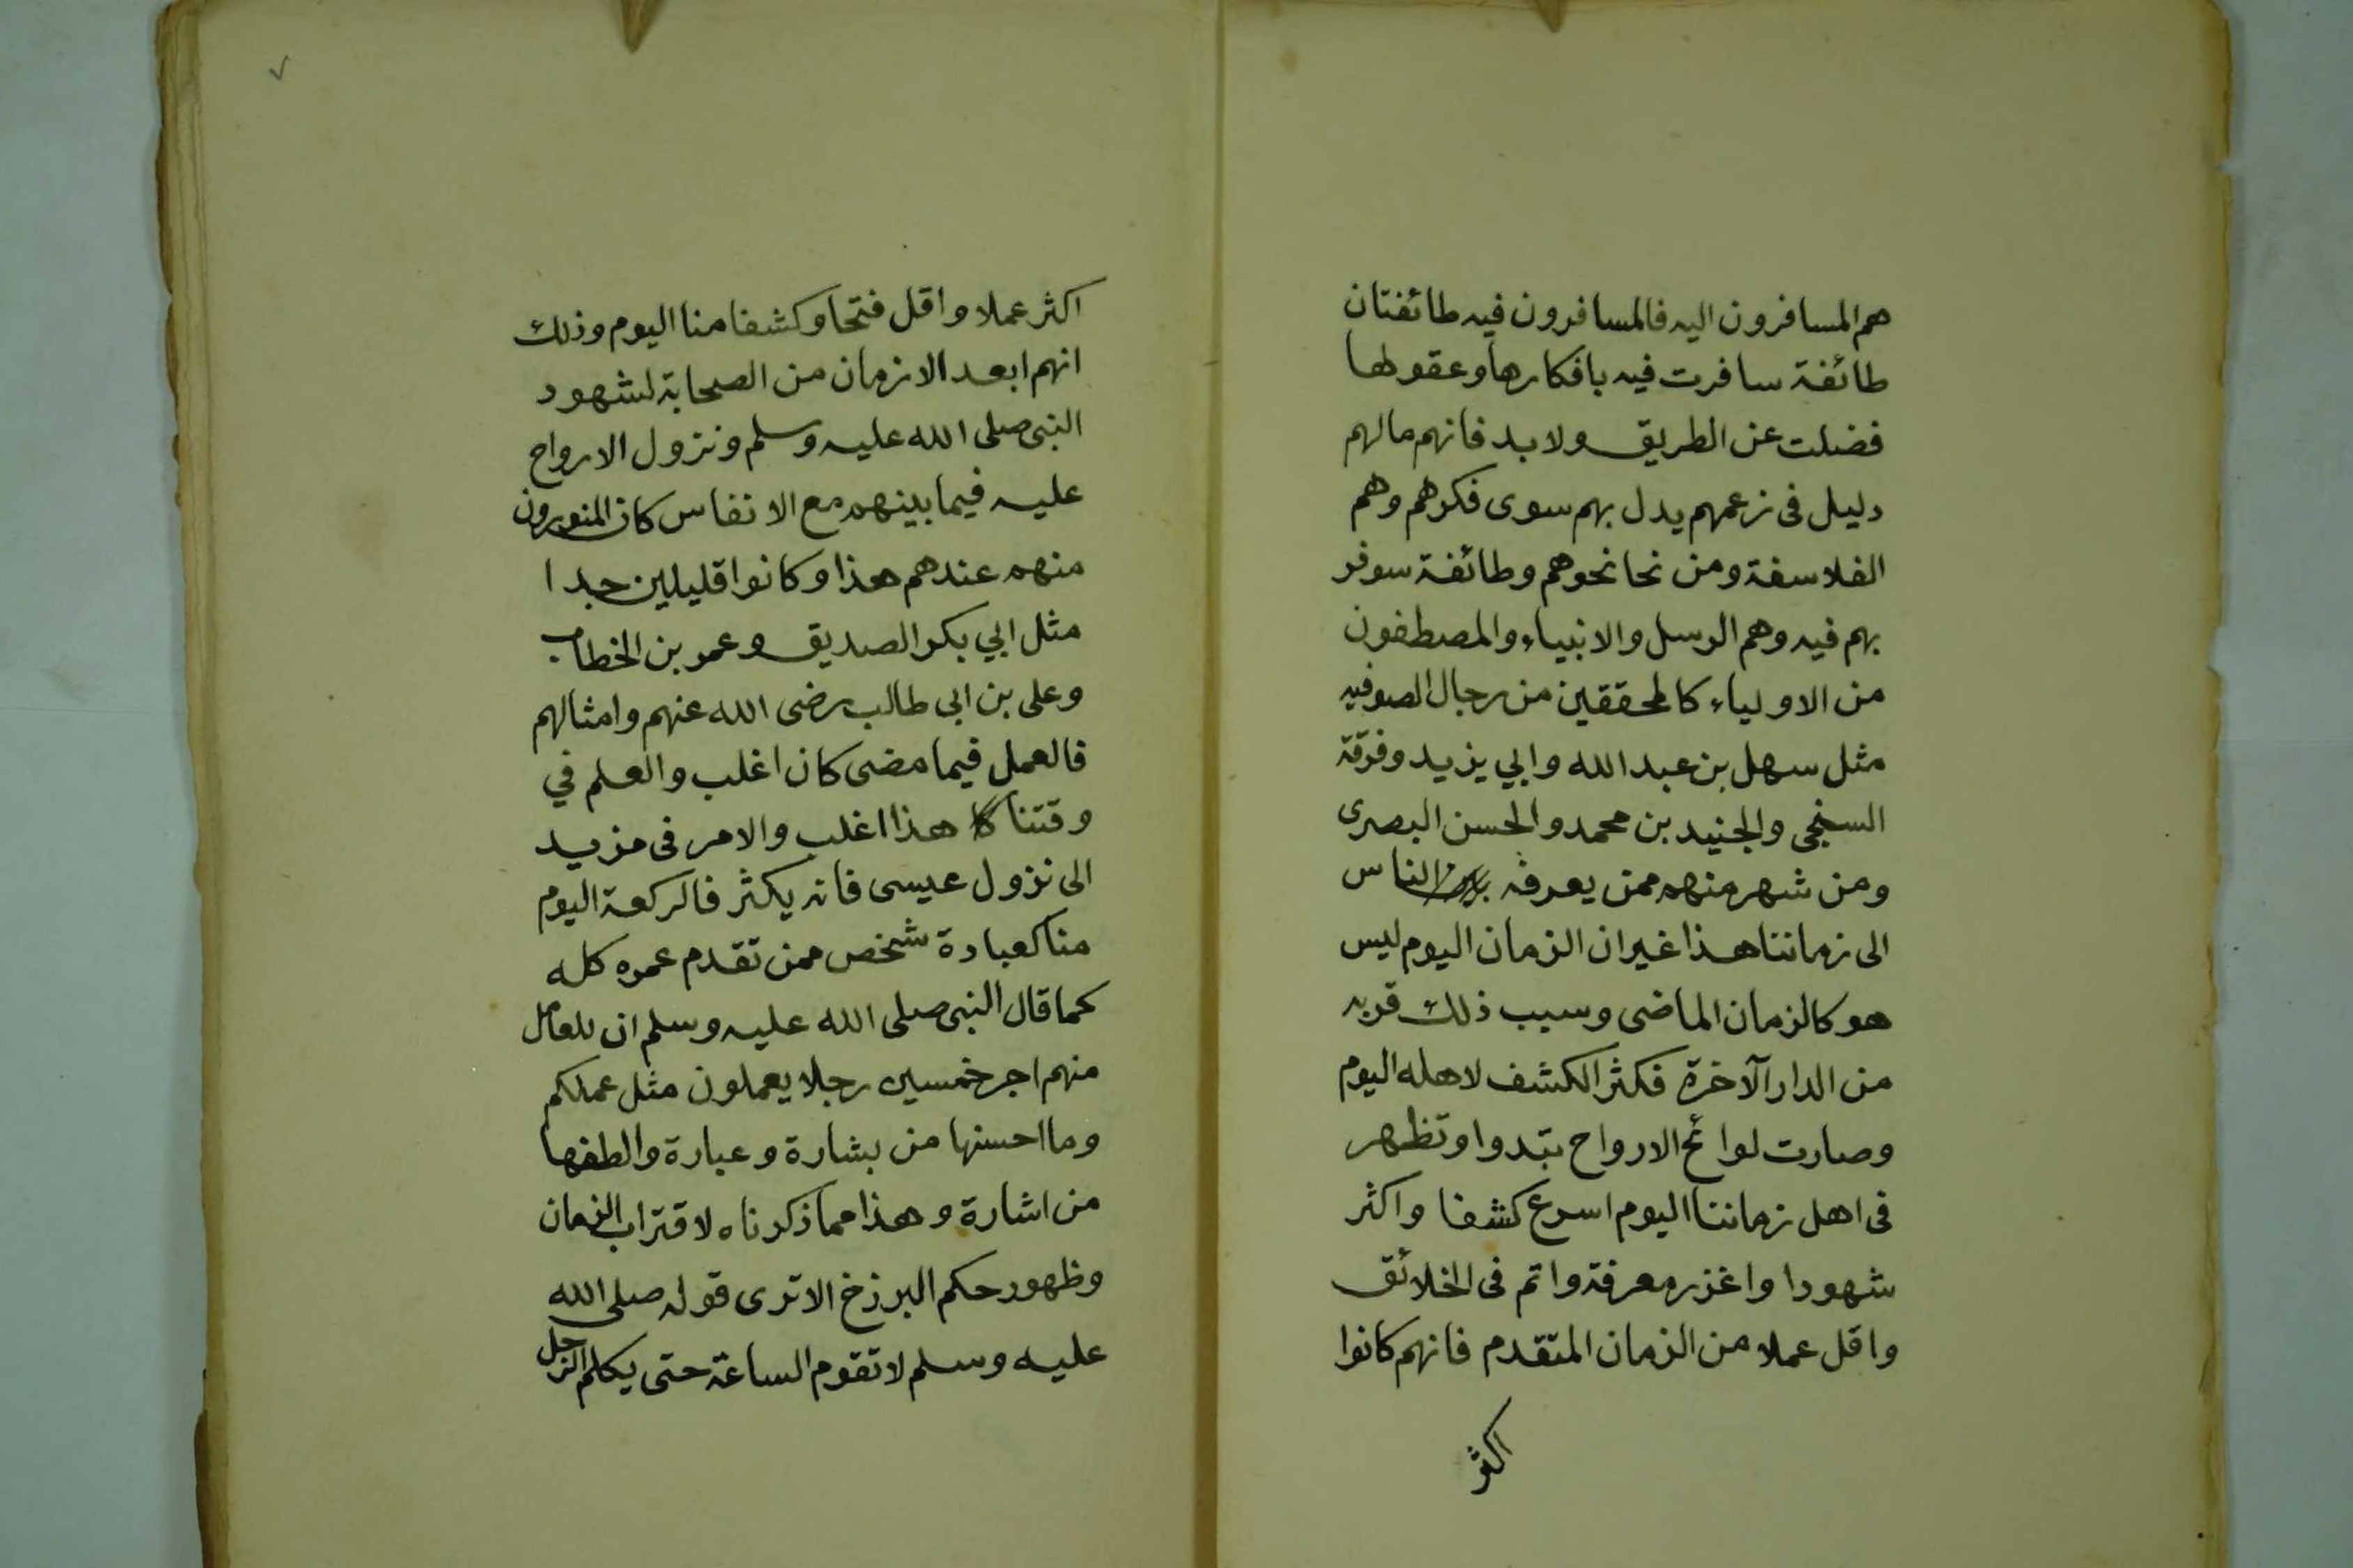 هم المسافرون اليه فالمسافرون فيه طائفتان
طائفة سافرت فيه بافكارها وعقولها
فضلت عن الطريق ولا بد فانهم مالهم
دليل فى زعمهم يدل بهم سوى فكرهم وهم
الفلاسفة ومن نحا نحوهم وطائفة سوفر
بهم فيه وهم الرسل والانبياء والمصطفون
من الاولياء كالمحققين من رجال الصوفيه
مثل سهل بن عبد الله وابي يزيد وفرقة
السنجى والجنيد بن محمد والحسن البصرى
ومن شهر منهم ممن يعرفه الناس
الى زماننا هذا غير ان الزمان اليوم ليس
هو كالزمان الماضى وسبب ذلك قربه
من الدار الآخرة فكثر الكشف لاهله اليوم
وصارت لوائح الارواح تبدوا وتظهر
فى اهل زماننا اليوم اسرع كشفا واكثر
شهودا واغزر معرفة واتم فى الخلائق
واقل عملا من الزمان المتقدم فانهم كانوا
اكثر
اكثر عملا واقل فتحا وكشفا منا اليوم وذلك
انهم ابعد الازمان من الصحابة لشهود
النبى صلى الله عليه وسلم ونزول الارواح
عليه فيما بينهم مع الانفاس كان المنورون
منهم عندهم هذا وكانوا قليلين جدا
مثل ابي بكر الصديق وعمر بن الخطاب
وعلى بن ابى طالب رضى الله عنهم وامثالهم
فالعمل فيما مضى كان اغلب والعلم في
وقتنا هذا اغلب والامر فى مزيد
الى نزول عيسى فانه يكثر فالركعة اليوم
منا كعبادة شخص ممن تقدم عمره كله
كما قال النبى صلى الله عليه وسلم ان للعامل
منهم اجر خمسين رجلا يعملون مثل عملكم
وما احسنها من بشارة وعبارة والطفها
من اشارة وهذا مما ذكرناه لاقتراب الزمان
وظهور حكم البرزخ الا ترى قوله صلى الله
عليه وسلم لا تقوم الساعة حتى يكلم الرجل